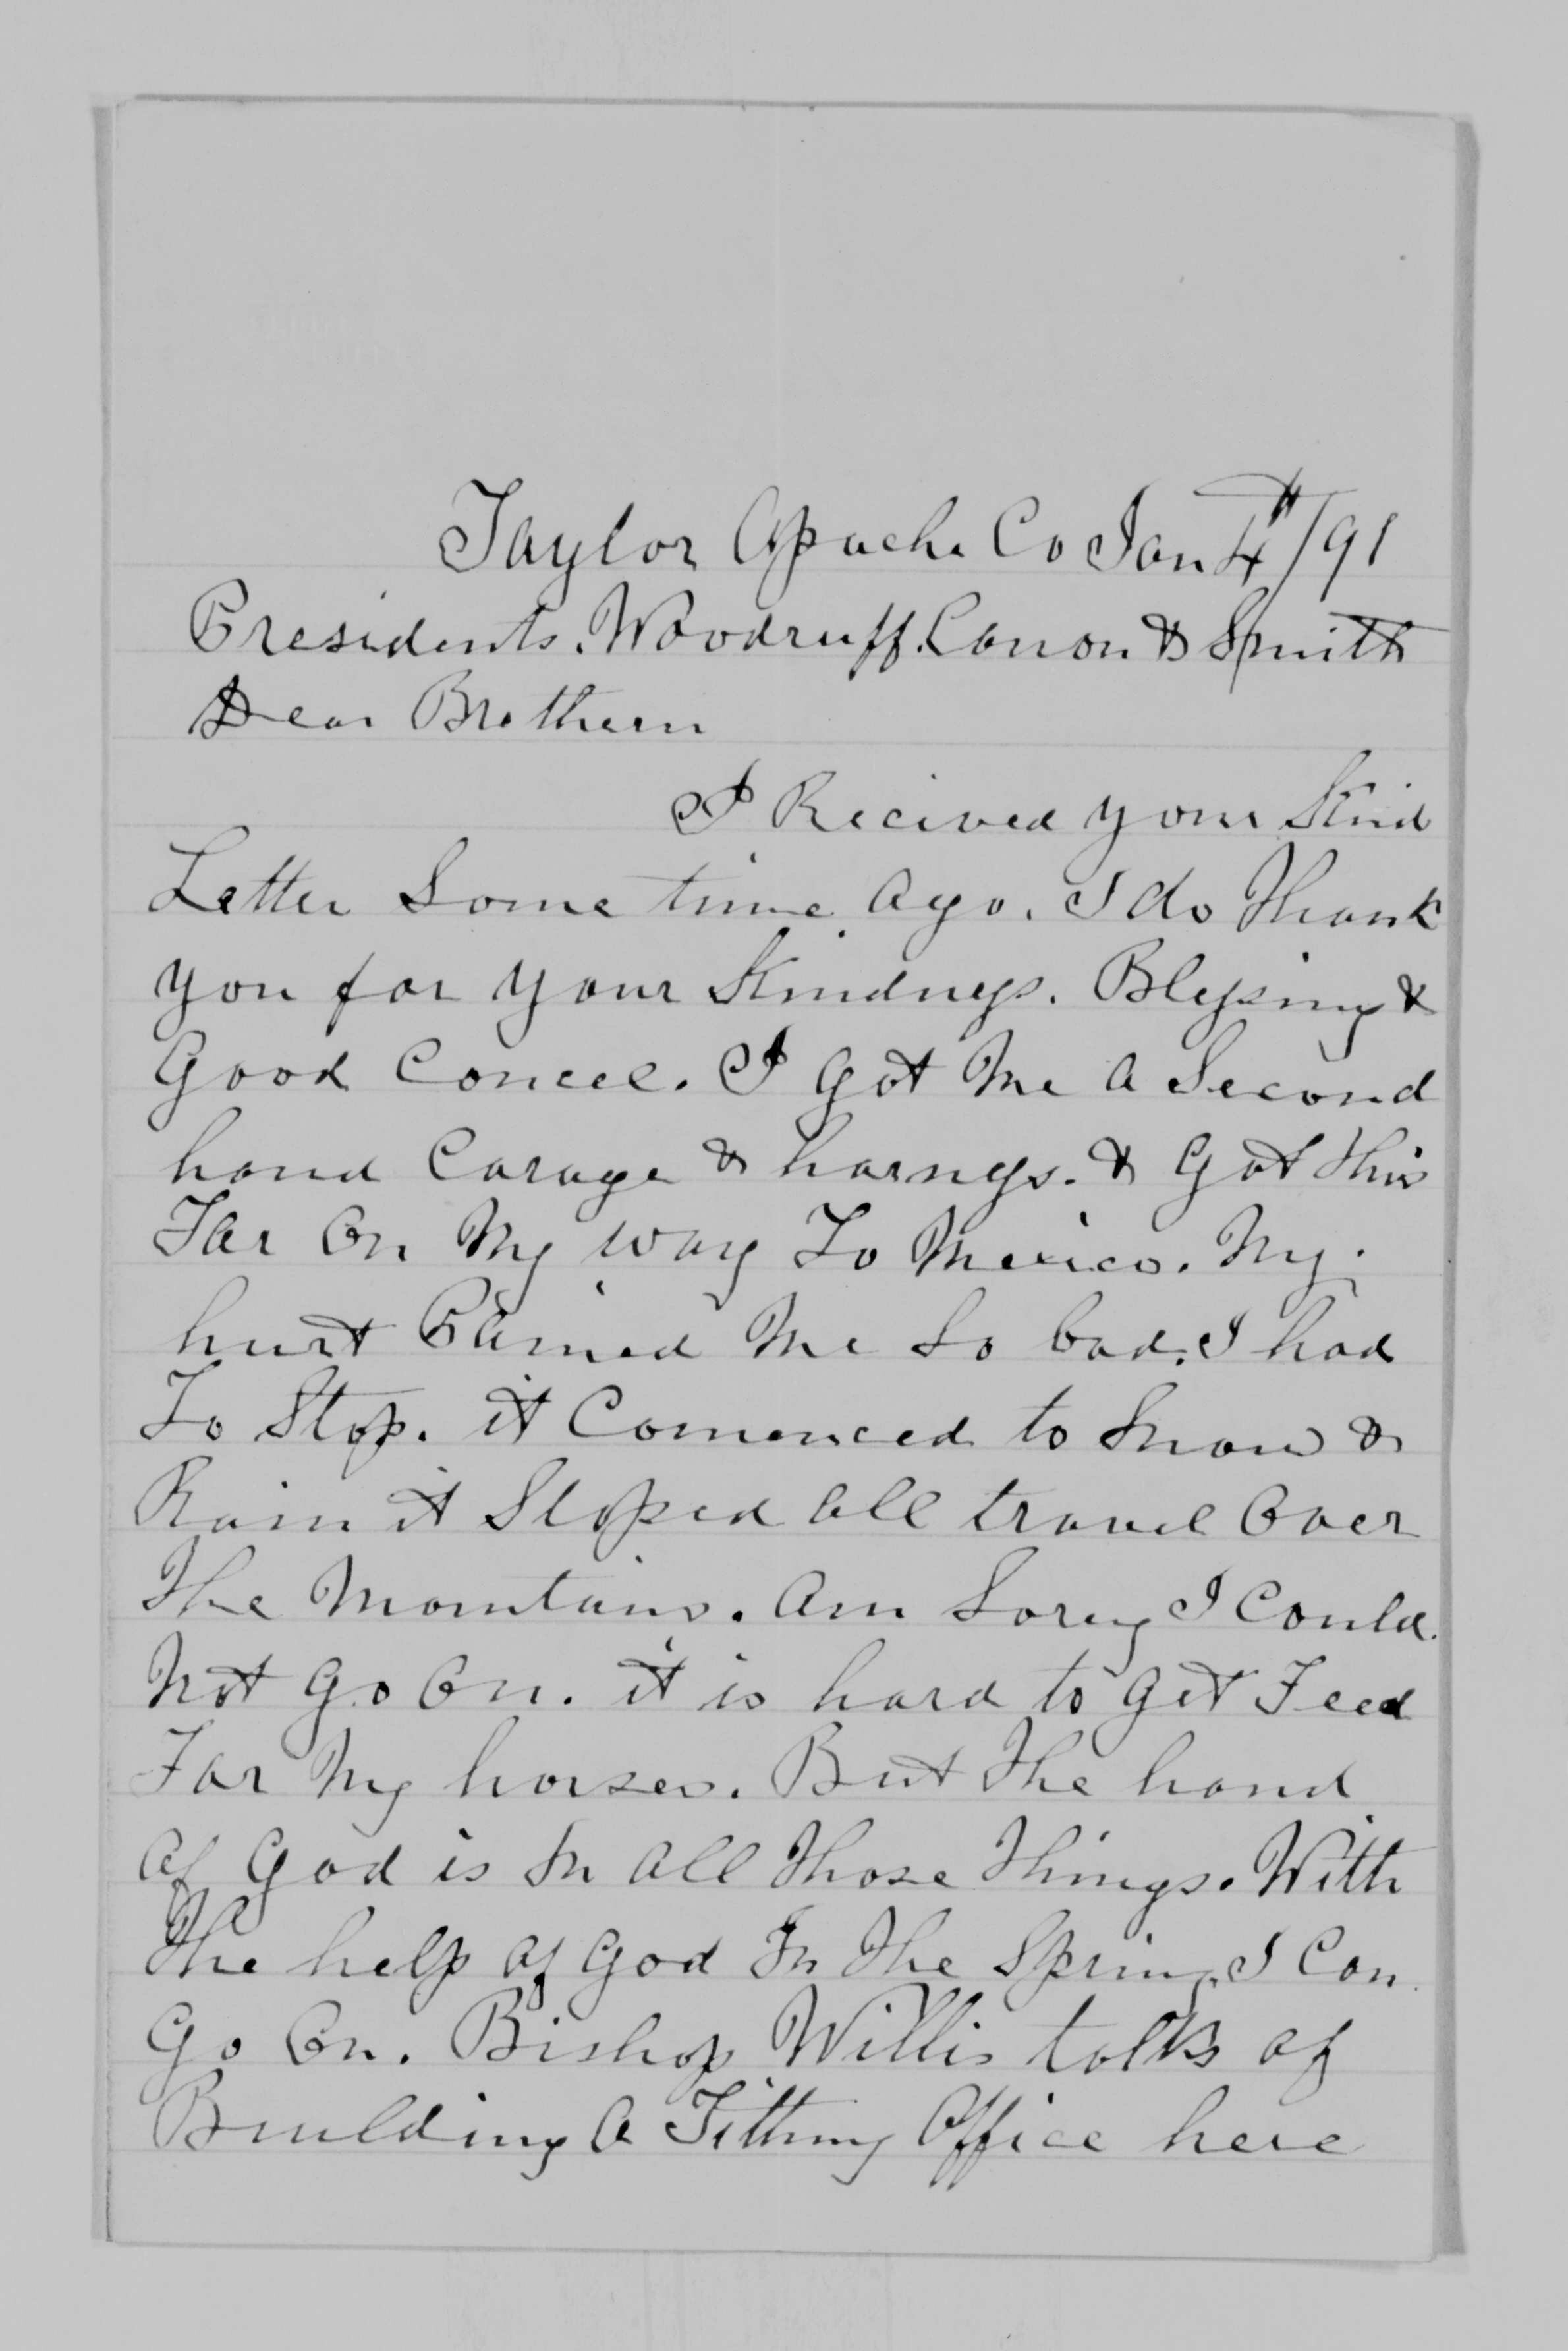 Taylor Apache Co Jan 4th/91
Presidents. Woodruff. Canon & Smith
Dear Brethern
I Recived your Kind
Letter Some time ago. I do Thank
you for your Kindness. Blessing &
Good Concel. I got Me a Second
hand Carage & harness. & Got this
Far On My way To Mexico. My
hurt Pained Me So bad. I had
To Stop. it Comenced to Snow &
Rain it Stoped all travel Over
The Mountains. am Sorey I Could
Not go On. it is hard to get Feed
For My horses. But The hand
of God is In all Those Things. With
The help of God In The Spring I Can
Go On. Bishop Willis talks of
Building a Tithing Office here